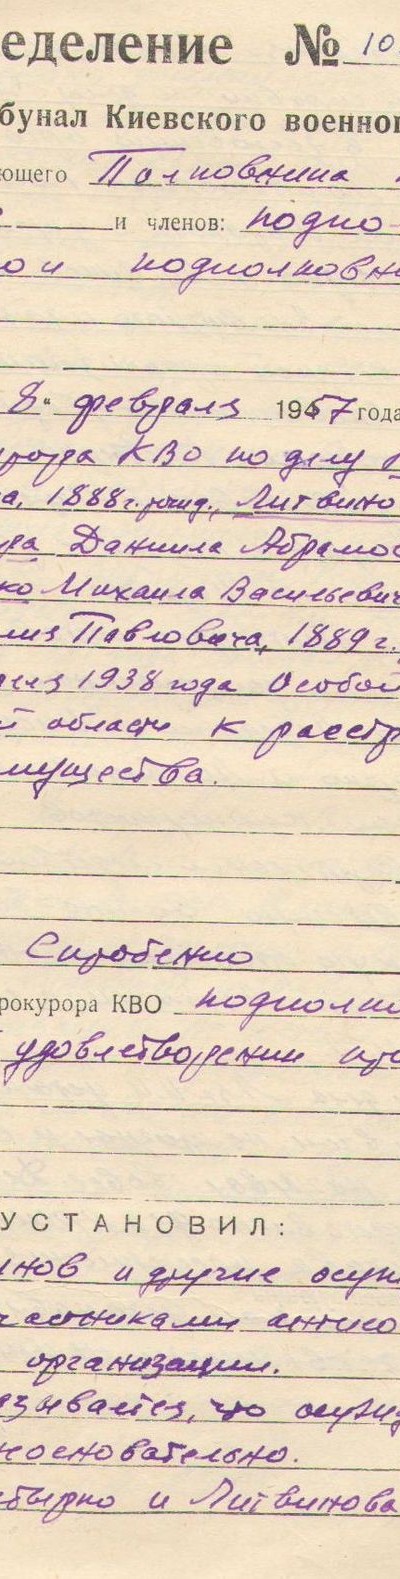 еделение № 10
бунал Киевского военног
ющего Полковника
и членов: подпо-
ои подполковн
8" февраля 1957 года
урора КВО по делу
а, 1888 г. рожд., Литвино
да Даниила Абрамов
ко Михаила Васильевич
лия Павловича, 1889 г.
реля 1938 года Особой
й области к расстр
мущества.
рокурора КВО подполко
удовлетворении пр
УСТАНОВИЛ:
инов и другие осуж
частниками антисо
организации.
азывается, что осужд
неосновательно.
и Литвинова